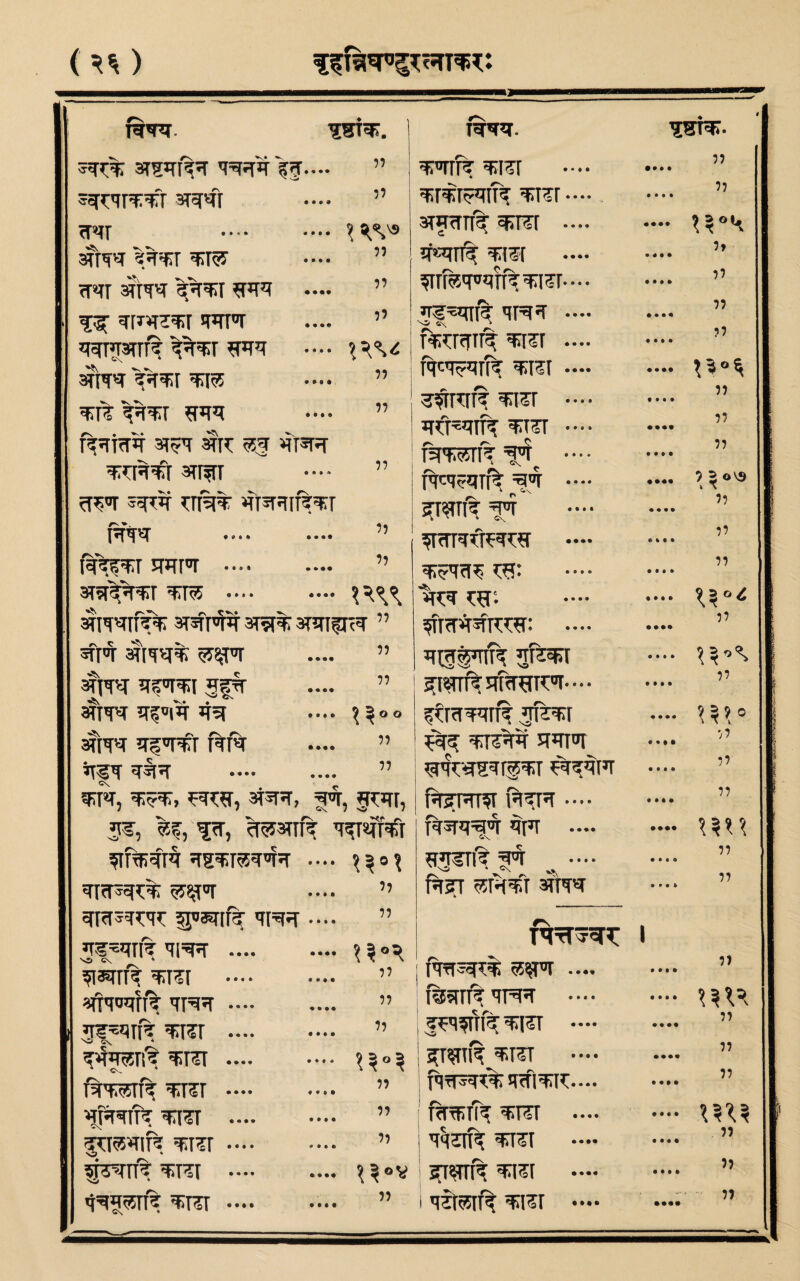 (२६) बृहन्निघण्टुरत्नाकर:
विषय. पृष्ठांक.
ज्वरके पाचनमें हेतु.... ”
ज्वरपाककी अवधी .... ”
तथा .... .... १२९७
औषध देनेका काल .... ”
तथा औषध देनेका समय .... ”
प्रमाण .... ”
यवागूआदि देनेका समय .... १२९८
औषध देनेका काल .... ”
काढे देनेका समय .... ”
दिनांतमें अल्प और लघु भोजन
करानेकी आज्ञा .... ”
तरुण ज्वरमें रात्रिके भोजनादिका
निषेध .... .... ”
विदेहका प्रमाण .... .... ”
अन्नदेनेका काल .... .... १२९९
औषधादिके अजीर्णमें अन्नके ”
जीर्ण औषधके लक्षण .... ”
औषध ग्रहणका मुहूर्त .... ”
औषध ग्रहणमें मंत्र .... १३००
औषध ग्रहणकी विधि .... ”
.... .... ”
काथ, कल्क, स्वरस, अंजन, चूर्ण,
गुड, लेह, घृत, तैलआदि पदार्थोंकी
शक्तिकी नष्टकालवर्णन .... १३०१
वातज्वरके लक्षण .... ”
वातज्वरपर शुण्ठ्यादि पाचन .... ”
गुडूच्यादि पाचन .... .... १३०२
द्राक्षादि काढा .... .... ”
पाचन .... .... ”
गुडूच्यादि काढा .... .... ”
पंचमूलादि काढा .... .... १३०३
काढा .... .... ”
भूनिंबादि काढा .... .... ”
दुरालभादि काढा .... .... ”
शुंठ्यादि काढा .... .... १३०४
पंचमूलादि काढा .... .... ”
विषय. पृष्ठांक.
कणादि काढा .... .... ”
काश्मर्यादि काढा .... .... ”
अमृतादि काढा .... .... १३०५
काढा .... .... ”
शालिपर्ण्यादि काढा.... .... ”
गुडूच्यादि पाचन .... .... ”
किरातादि काढा .... .... ”
पिप्पल्यादि काढा .... .... १३०६
उशीरादि काढा .... .... ”
मरीच्यादि काढा .... .... ”
त्रिफलादि चूर्ण .... .... ”
पिप्पल्यादि चूर्ण .... .... १३०७
द्राक्षादि चूर्ण .... .... ”
.... .... ”
कल्पतरु रस: .... .... ”
रस: .... .... १३०८
शीतभंजीररस: .... .... ”
गुटिका .... १३०९
द्राक्षादि प्रतिसारण.... .... ”
हरीतक्यादि गुटिका .... १३१०
स्वेद काढेमें प्रमाण .... ”
.... ”
निद्रानाश निदान .... .... ”
.... .... १३११
चूर्ण .... .... ”
निद्रा लानेकी औषध .... ”
पित्तज्वर ।
पित्तज्वरके लक्षण .... .... ”
पाचन .... .... १३१२
काढा .... .... ”
द्राक्षादि काढा .... .... ”
पित्तज्वरके प्रतिकार.... .... ”
तिक्तादि काढा .... .... १३१३
पर्पटादि काढा .... .... ”
द्राक्षादि काढा .... .... ”
पटोलादि काढा .... .... ”